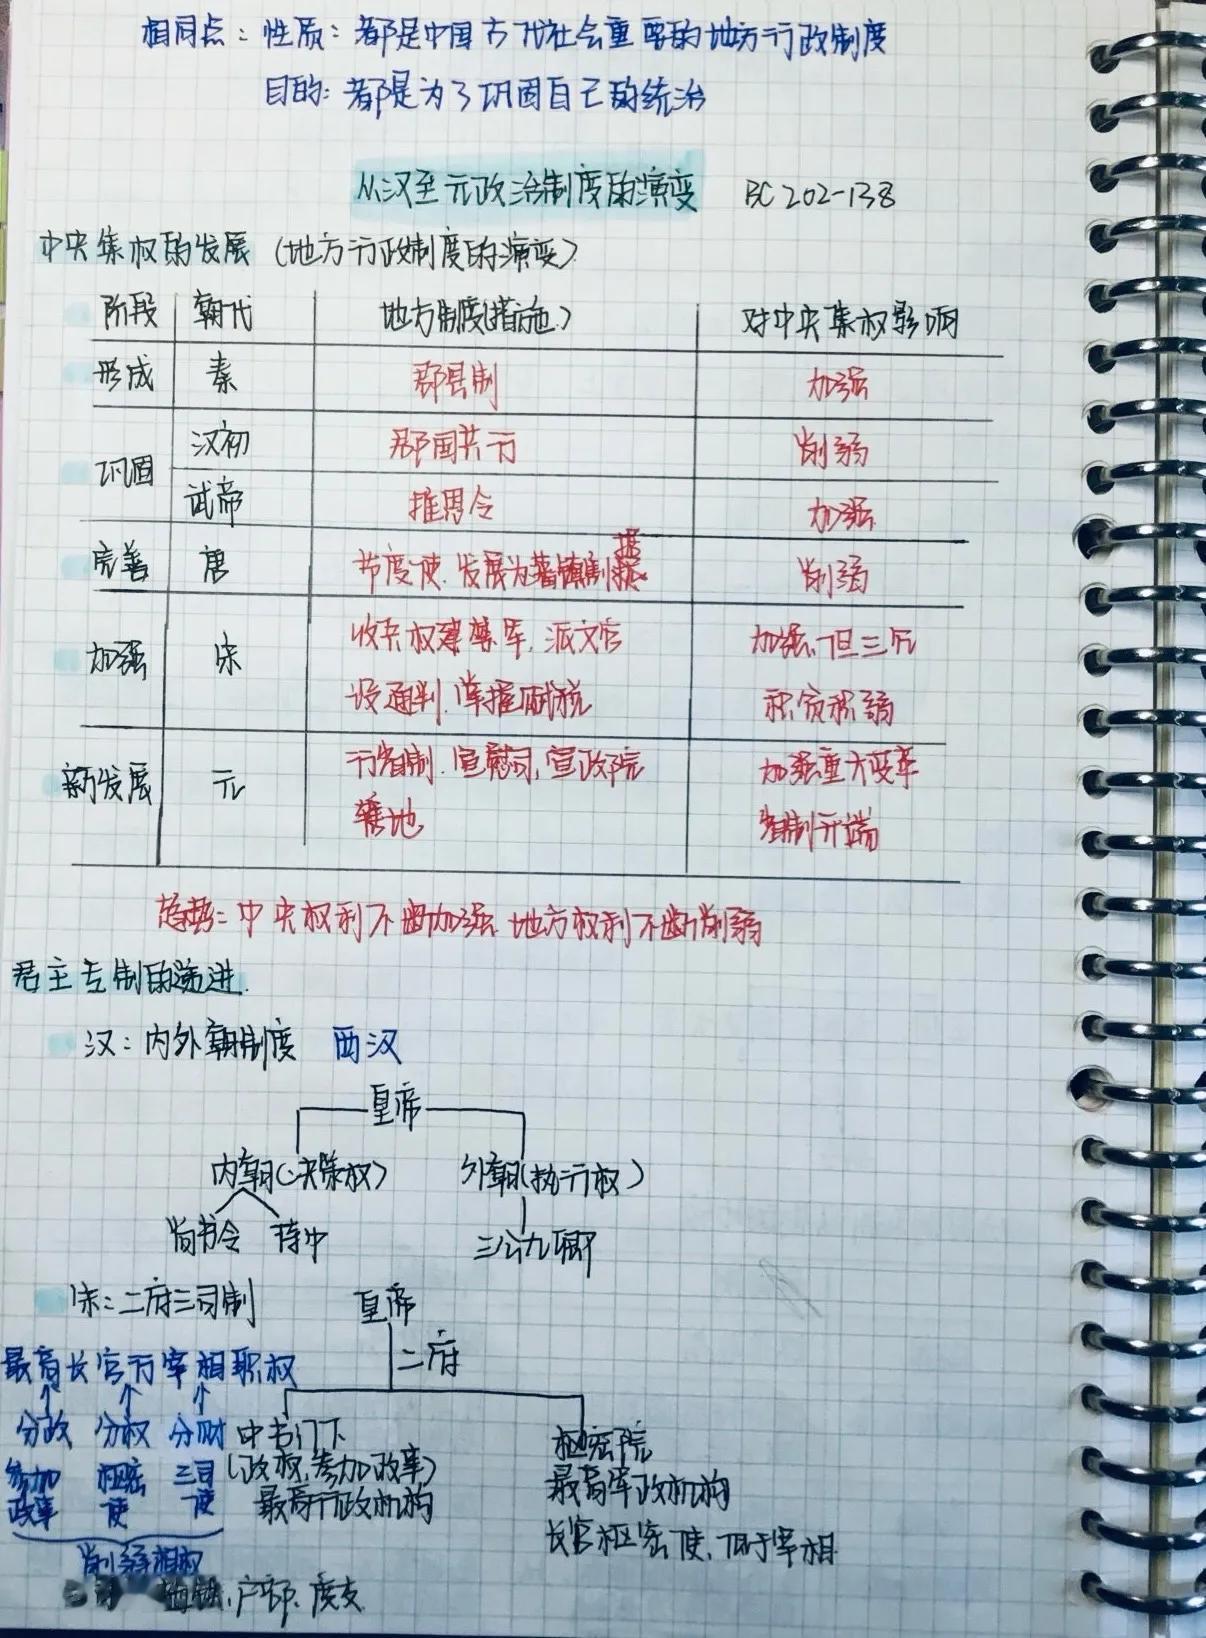 相同点：性质：都是中国古代社会重要的地方行政制度
目的：都是为了巩固自己的统治
从汉至元政治制度的演变 BC 202-138
中央集权的发展（地方行政制度的演变）
阶段 朝代 地方制度(措施) 对中央集权影响
形成 秦 郡县制 加强
巩固 汉初 郡国共行 削弱
武帝 推恩令 加强
完善 唐 节度使.发展为藩镇割据 削弱
加强 宋 收兵权建禁军,派文官 加强,但三冗
设通判.掌握赋税 积贫积弱
新发展 元 行省制.宣慰司,宣政院 加强重大变革
辖地 省制开端
趋势：中央权利不断加强 地方权利不断削弱
君主专制的递进.
汉：内外朝制度 西汉
皇帝
内朝(决策权) 外朝(执行权)
尚书令 侍中 三公九卿
宋：二府三司制 皇帝
二府
最高长官行宰相职权
分政 分权 分财 中书门下 枢密院
参加 枢密 三司 (政权,参加政事) 最高军政机构
政事 使 使 最高行政机构 长官枢密使,低于宰相
削弱相权
三司 盐铁,户部.度支